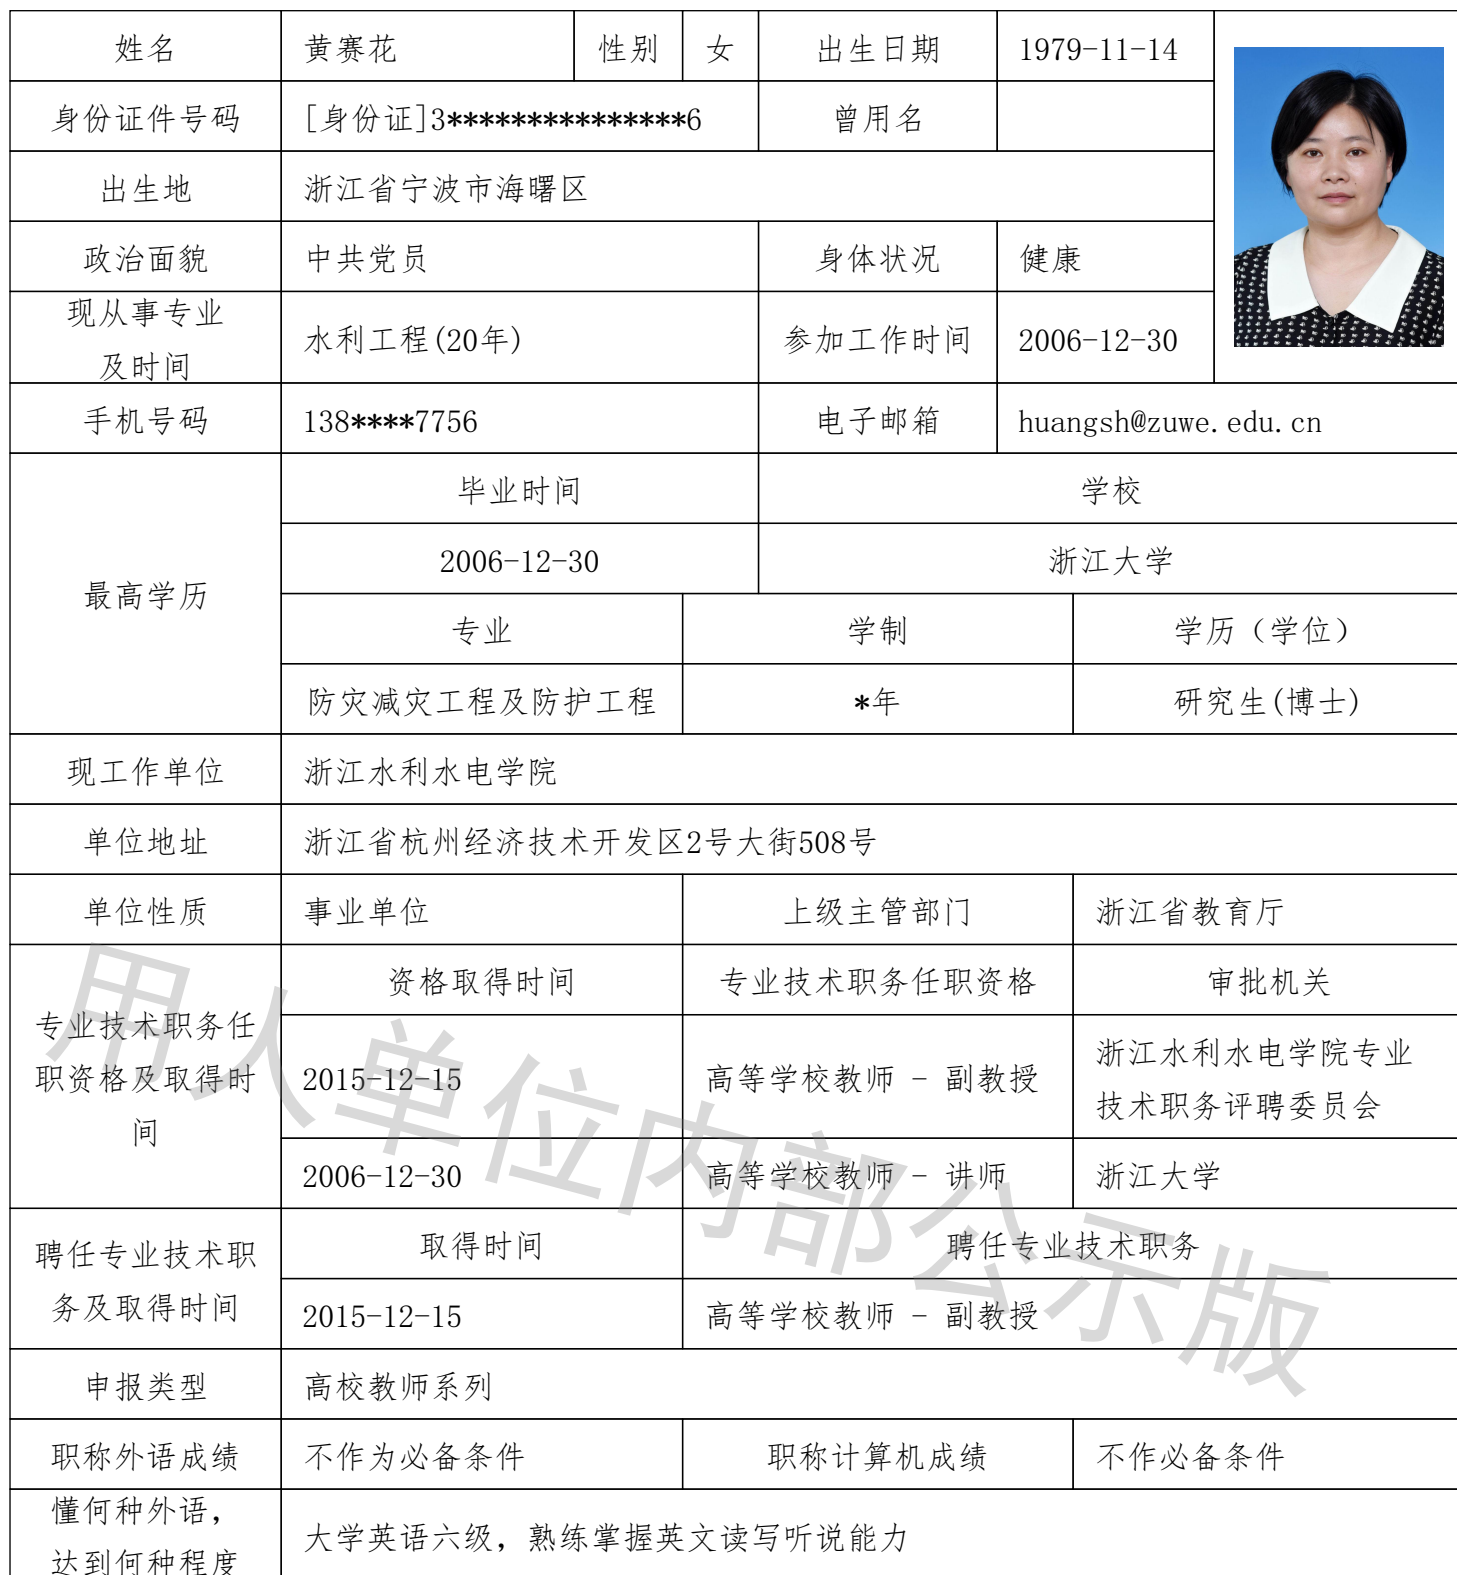 姓名 黄赛花 性别 女 出生日期 1979-11-14
身份证件号码 [身份证]3***************6 曾用名
出生地 浙江省宁波市海曙区
政治面貌 中共党员 身体状况 健康
现从事专业
及时间 水利工程(20年) 参加工作时间 2006-12-30
手机号码 138****7756 电子邮箱 huangsh@zuwe.edu.cn
最高学历
毕业时间 学校
2006-12-30 浙江大学
专业 学制 学历（学位）
防灾减灾工程及防护工程 *年 研究生(博士)
现工作单位 浙江水利水电学院
单位地址 浙江省杭州经济技术开发区2号大街508号
单位性质 事业单位 上级主管部门 浙江省教育厅
专业技术职务任
职资格及取得时
间
资格取得时间 专业技术职务任职资格 审批机关
2015-12-15 高等学校教师 - 副教授 浙江水利水电学院专业
技术职务评聘委员会
2006-12-30 高等学校教师 - 讲师 浙江大学
聘任专业技术职
务及取得时间
取得时间 聘任专业技术职务
2015-12-15 高等学校教师 - 副教授
申报类型 高校教师系列
职称外语成绩 不作为必备条件 职称计算机成绩 不作必备条件
懂何种外语，
达到何种程度 大学英语六级，熟练掌握英文读写听说能力
用人单位内部公示版